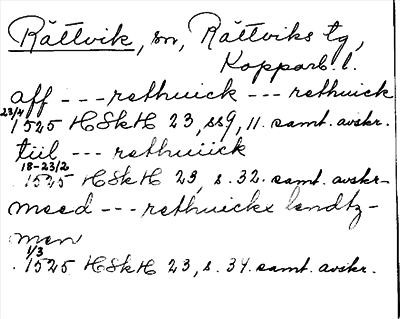 Rättvik, sn, Rättviks tg,
Kopparb. l.
aff --- rethuick --- rethuick
23/4 1525 HSkH 23, ss 9, 11. samt. avskr.
tiil --- rethuiick
18-23/2 1525 HSkH 23, s. 32. samt. avskr.
meed --- rethuickx lendtz-
men
1/3 1525 HSkH 23, s. 34. samt. avskr.